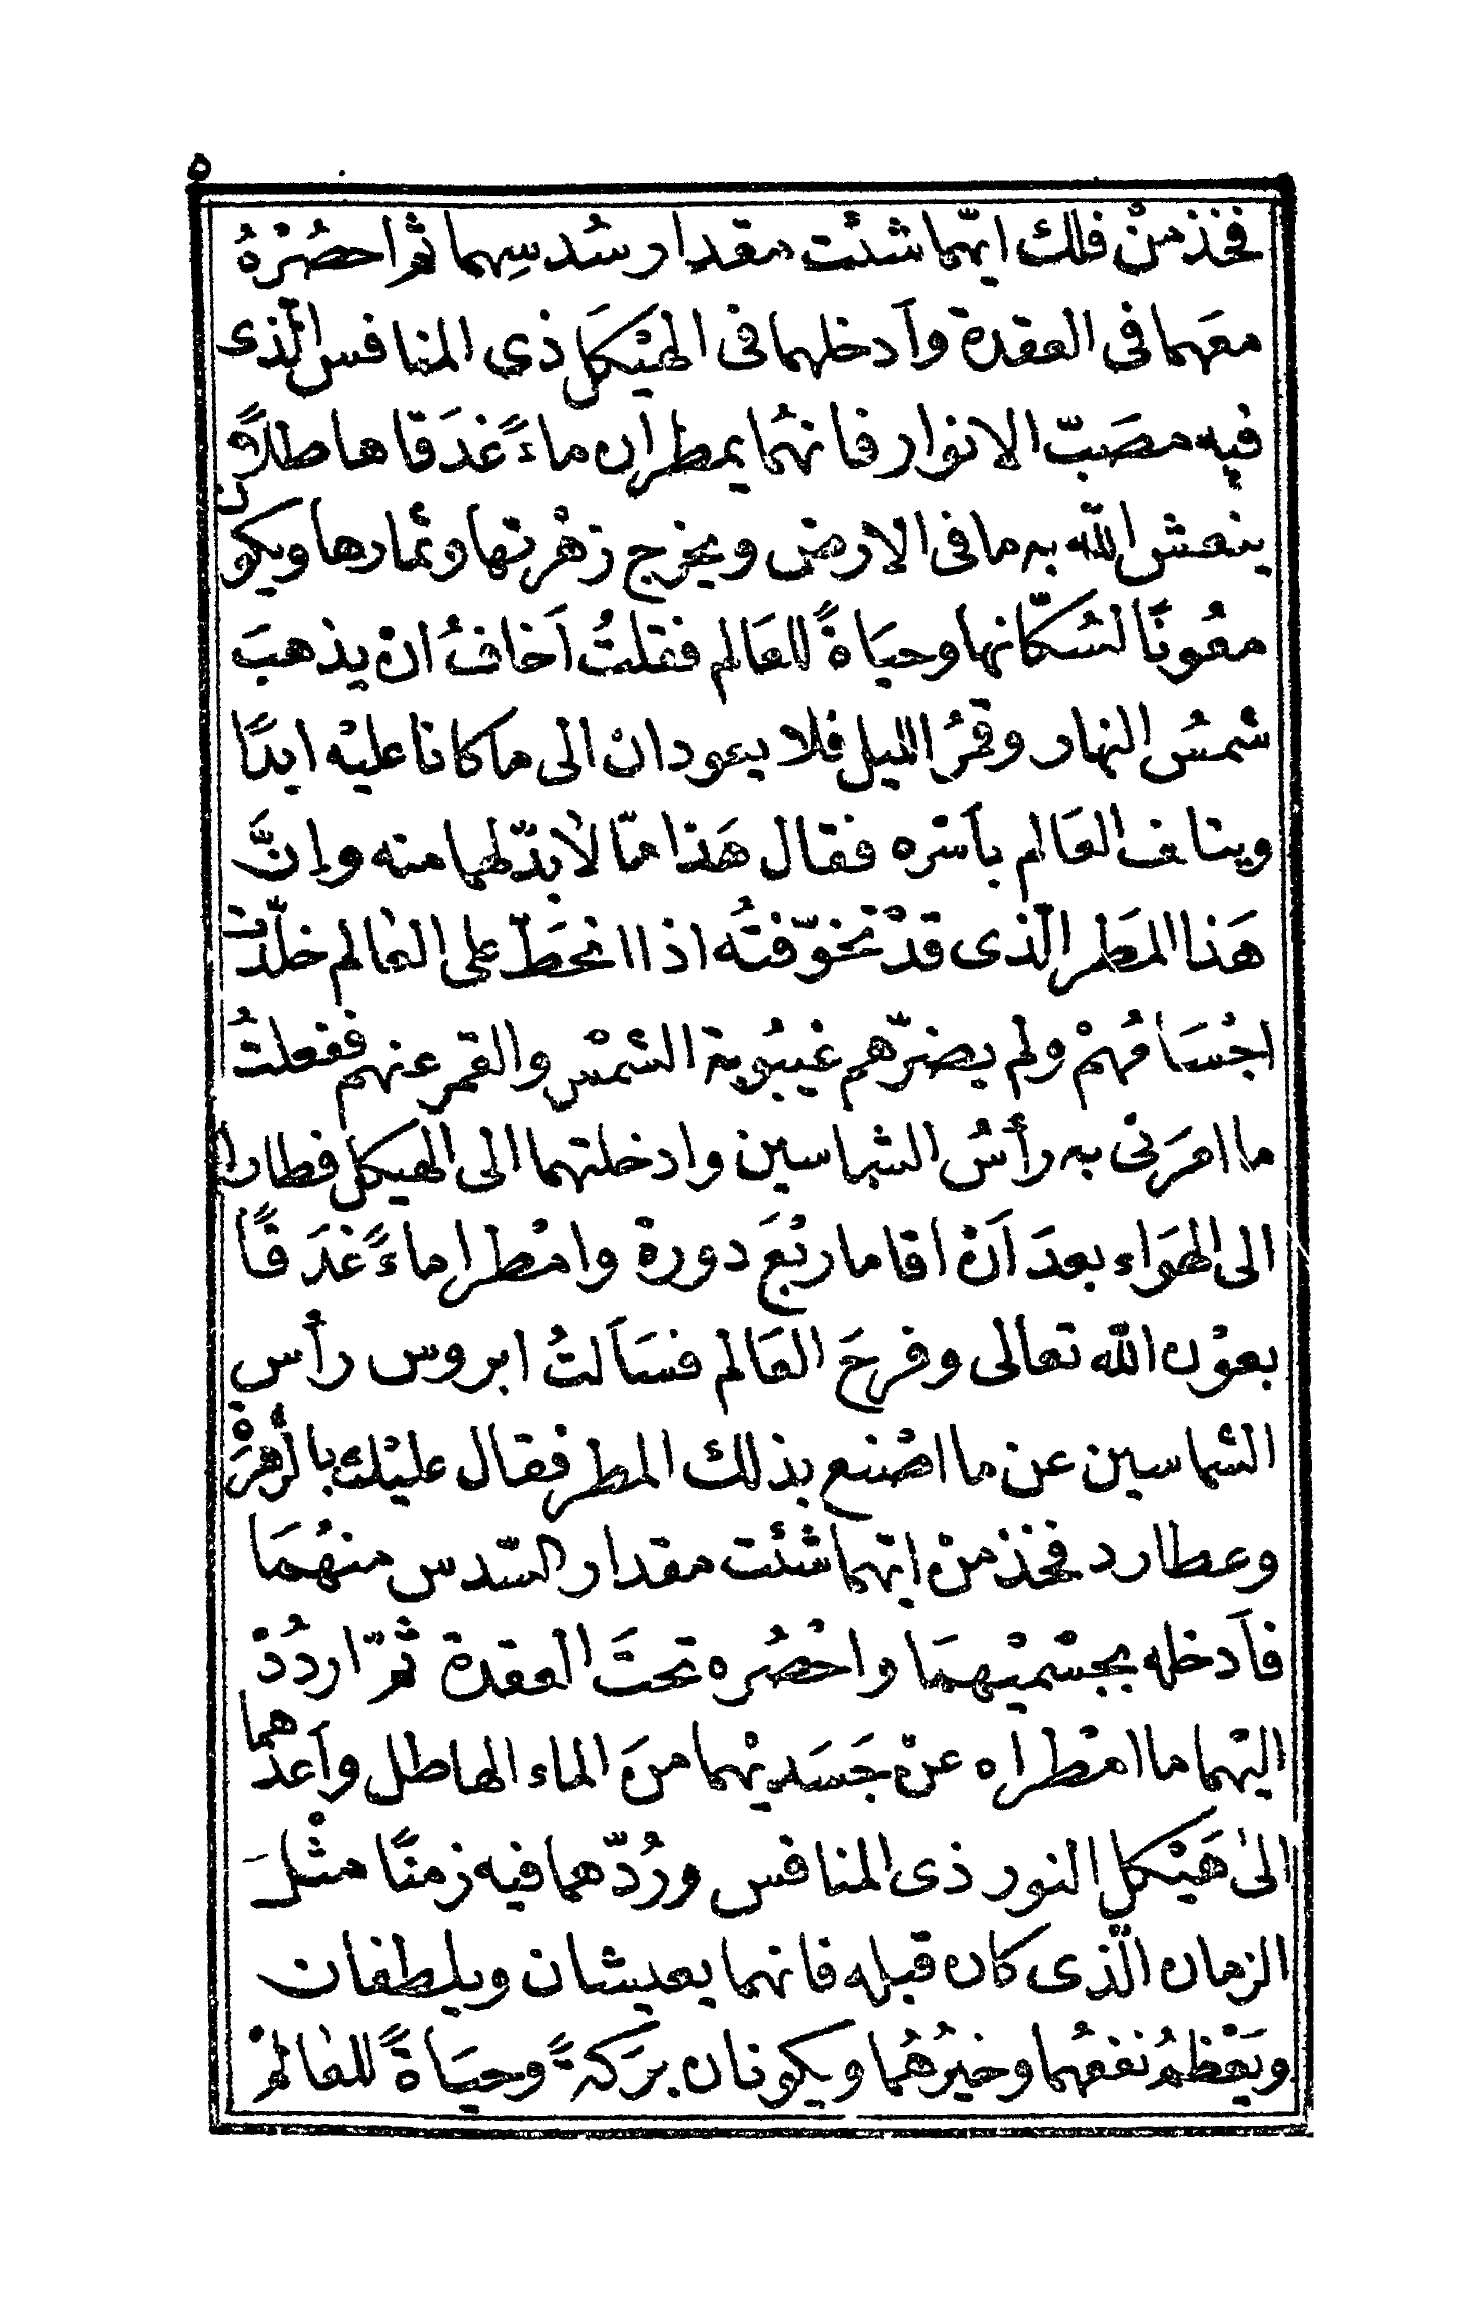 ٥
فخذ منْ فلك ايّهما شئت مقدار سُدسِهما ثم احصُرْهُ
معَهما فى العقدة وآدخلهما فى الهيْكَل ذي المنافس الّذى
فيه مصَبّ الانوار فانهُما يمطران ماءً غدَقا هاطلًا و
ينعش الله به ما فى الارض ويخرج زهْرتها وثمارها ويكون
معُونًا لسُكّانها وحيَاةً للعَالم فقلتُ آخافُ انْ يذهبَ
شمسُ النهار وقمرُ الليل فلا يعودانْ الى ما كانا عليْه ابدًا
ويتلف العَالم بآسْره فقال هَذا ممّا لابدّ لهما منه وإنَّ
هَذا المطَر الّذى قدْ تخوّفتُه اذا انحَطّ على العٰالم خلّدت
اجْسَامُهُمْ ولم يضرّهم غيبُوبة الشمْس والقمر عنهم ففعلتُ
ما امرَنى به رأسُ الشماسين وادخلتهما الى الهيكل فطارا
الى الهَواء بعدَ آنْ اقاما ربْعَ دورة وامْطرا ماءً غدَقًا
بعوْن الله تعالى وفرحَ العَالم فسَآلتُ ابروس رأس
الشماسين عن ما اصْنع بذلك المطر فقال عليْك بالزّهرَة
وعطارد فخذ منْ ايّهما شئت مقدار السّدس منهُمَا
فآدخله بجسْميْهمَا واحْصُره تحتَ العقدة ثمّ ارددْ
اليْهما ما امْطراه عنْ جَسَديْهما منَ الماء الهاطل وآعدْهما
الىٰ هَيْكل النور ذى المنافس ورُدّهما فيه زمنًا مثْلَ
الزمان الّذى كان قبله فانهما يعيشان ويلطفان
ويَعْظمُ نفعُهما وخيرُهُما ويكونان برَكةً وحيَاةً للعٰالمْ